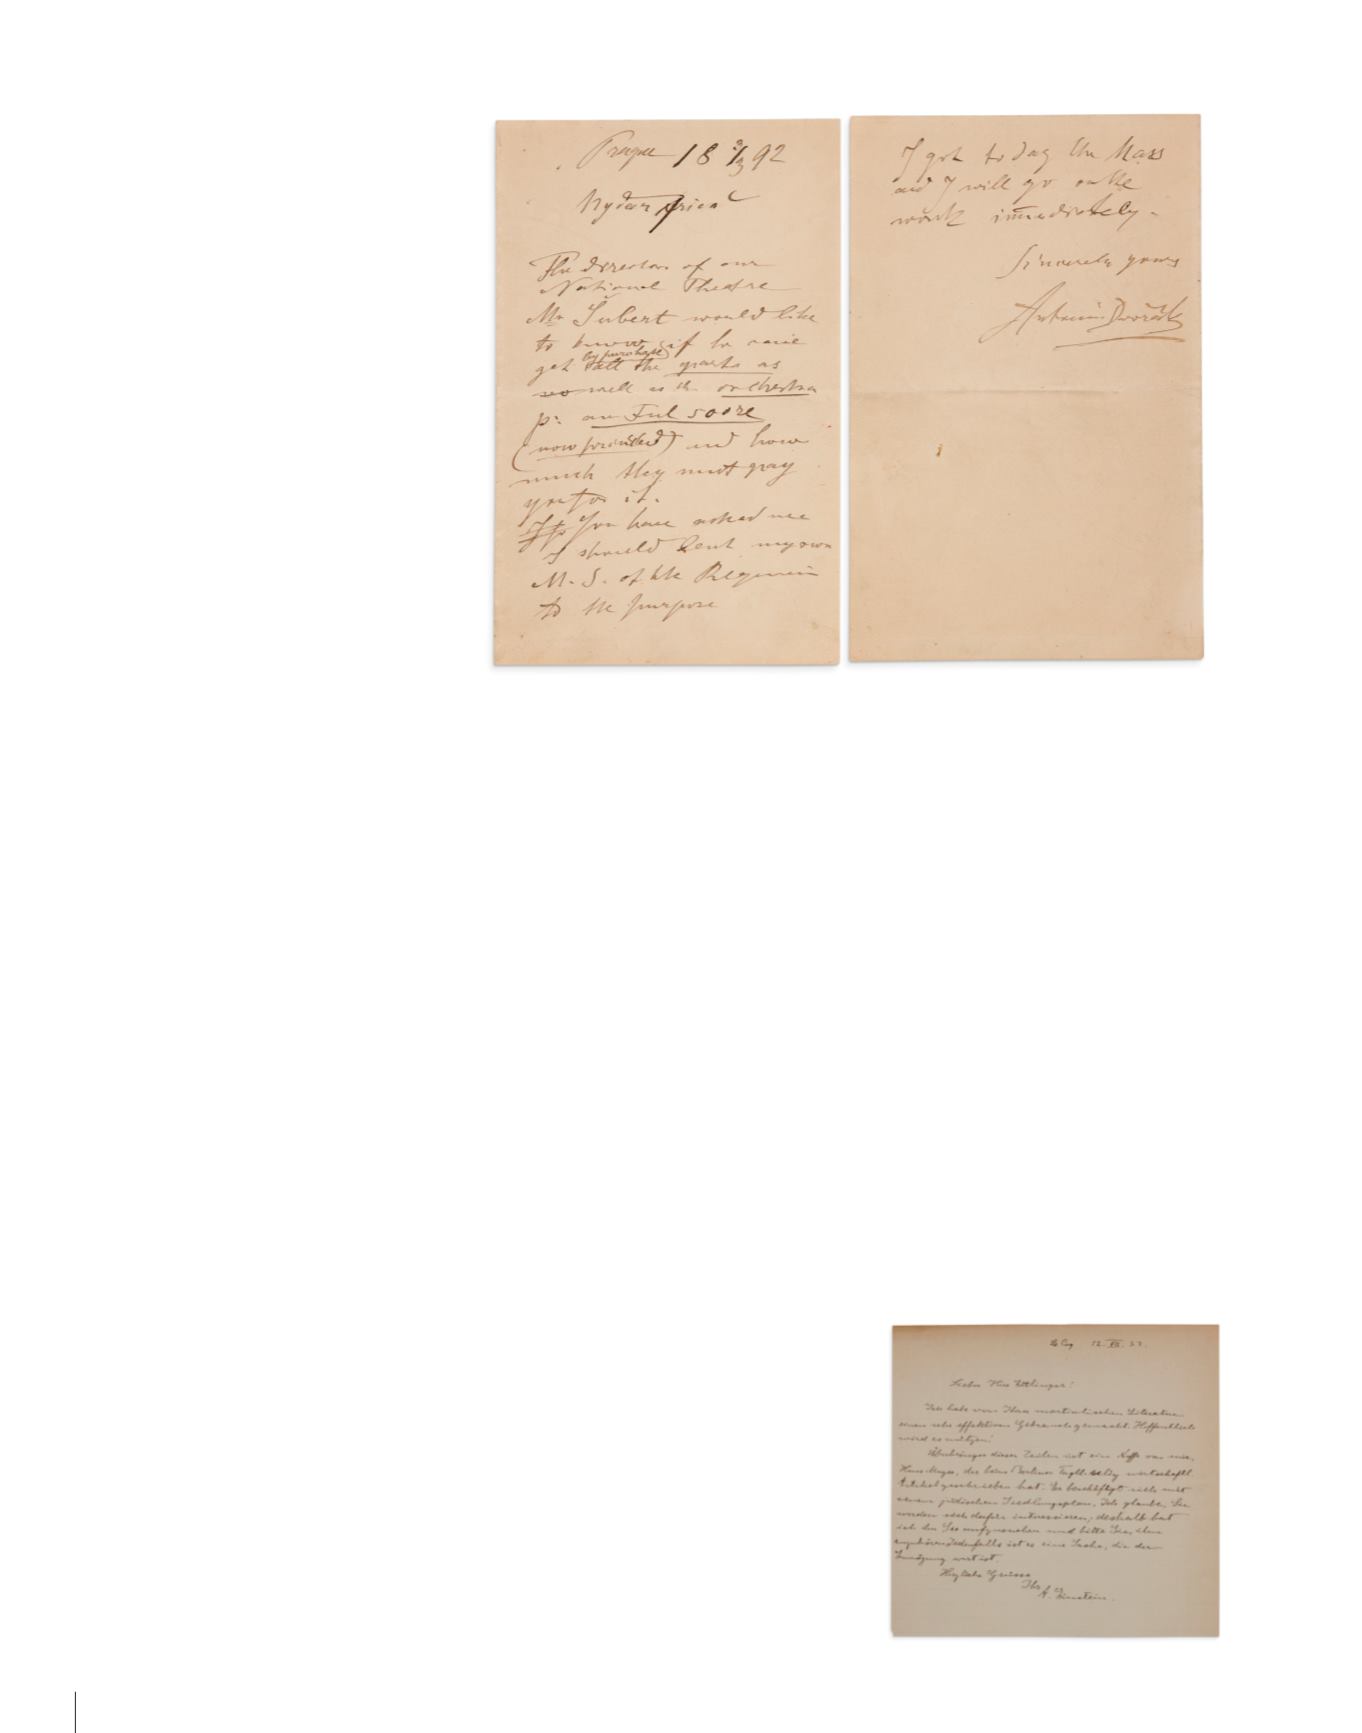 Prague 18 9/3 92
My dear friend
The director of our
National Theatre
Mr Šubert would like
to know if he can
get all the parts as
by purchase
so well as the orchestra
p: an Ful score
(now printed) and how
much they must pay
you for it.
If You have asked me
I should lent my own
M. S. of the Requiem
to the purpose
I got to day the Mass
and I will go on the
work immediately.
Sincerely yours
Antonín Dvořák
Le Coq 12. VII. 33.
Lieber Herr Ettlinger!
Ich habe von Ihrer Literatur
einen sehr effektiven Gebrauch gemacht. Hoffentlich
wird es nützen!
Überbringer dieser Zeilen ist ein Neffe von mir,
Hans Meyer, der beim Berliner Tagbl. wirtschaftl.
Artikel geschrieben hat. Er beschäftigt sich mit
einem jüdischen Siedlungsplan. Ich glaube, Sie
werden sich dafür interessieren; deshalb hat
ich ihn Sie aufzusuchen und bitte Sie, ihn
anzuhören. Jedenfalls ist es eine Sache, die der
wert ist.
Herzliche Grüsse
Ihr
A. Einstein.